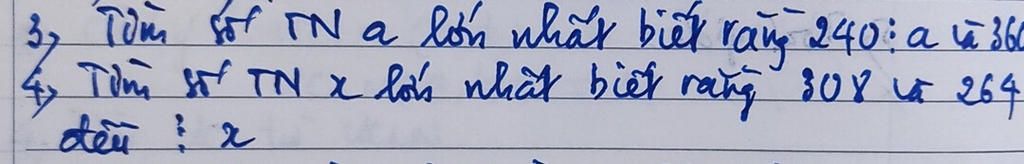 3, Tìm số TN a lớn nhất biết rằng 240 ⋮ a và 360
4, Tìm số TN x lớn nhất biết rằng 308 và 264
đều ⋮ x